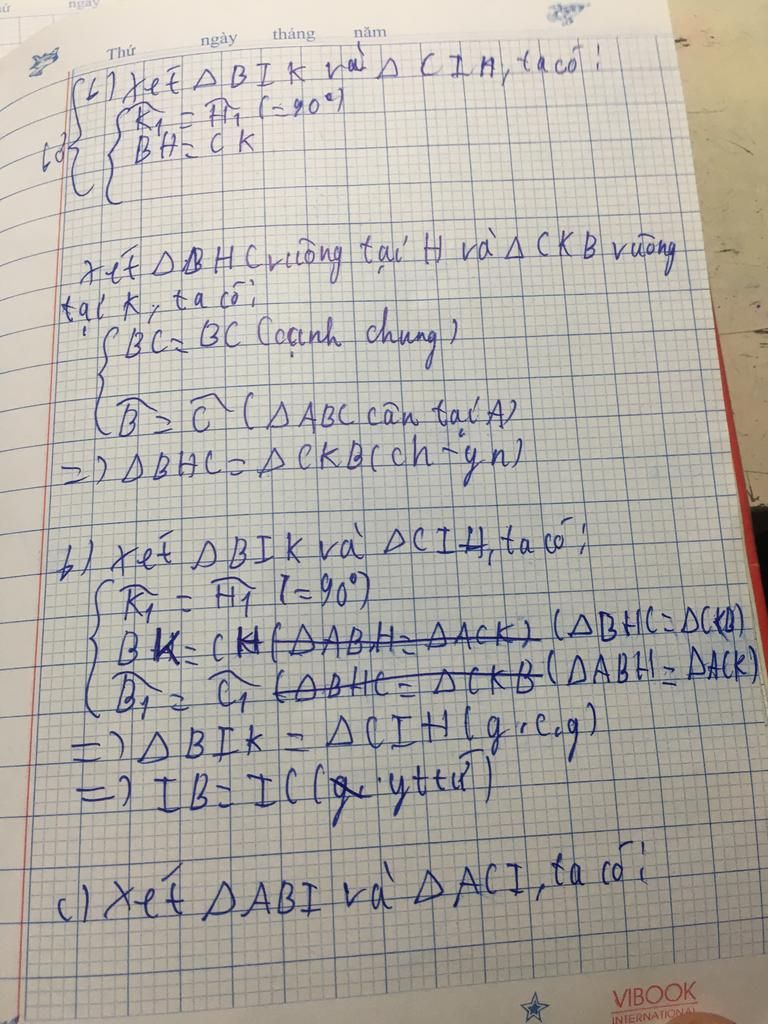 Thứ ngày tháng năm
b) Xét ΔBIK và ΔCIH, ta có:
K̂₁ = Ĥ₁ (=90°)
BH = CK
Xét ΔBHC vuông tại H và ΔCKB vuông
tại K, ta có:
BC = BC (cạnh chung)
B̂ = Ĉ (ΔABC cân tại A)
=> ΔBHC = ΔCKB (ch-gn)
b) Xét ΔBIK và ΔCIH, ta có:
K̂₁ = Ĥ₁ (=90°)
BK = CH (ΔABH = ΔACK) (ΔBHC = ΔCKB)
B̂₁ = Ĉ₁ (ΔBHC = ΔCKB (ΔABH = ΔACK)
=> ΔBIK = ΔCIH (g.c.g)
=> IB = IC (yttứ)
c) Xét ΔABI và ΔACI, ta có:
VIBOOK
INTERNATIONAL